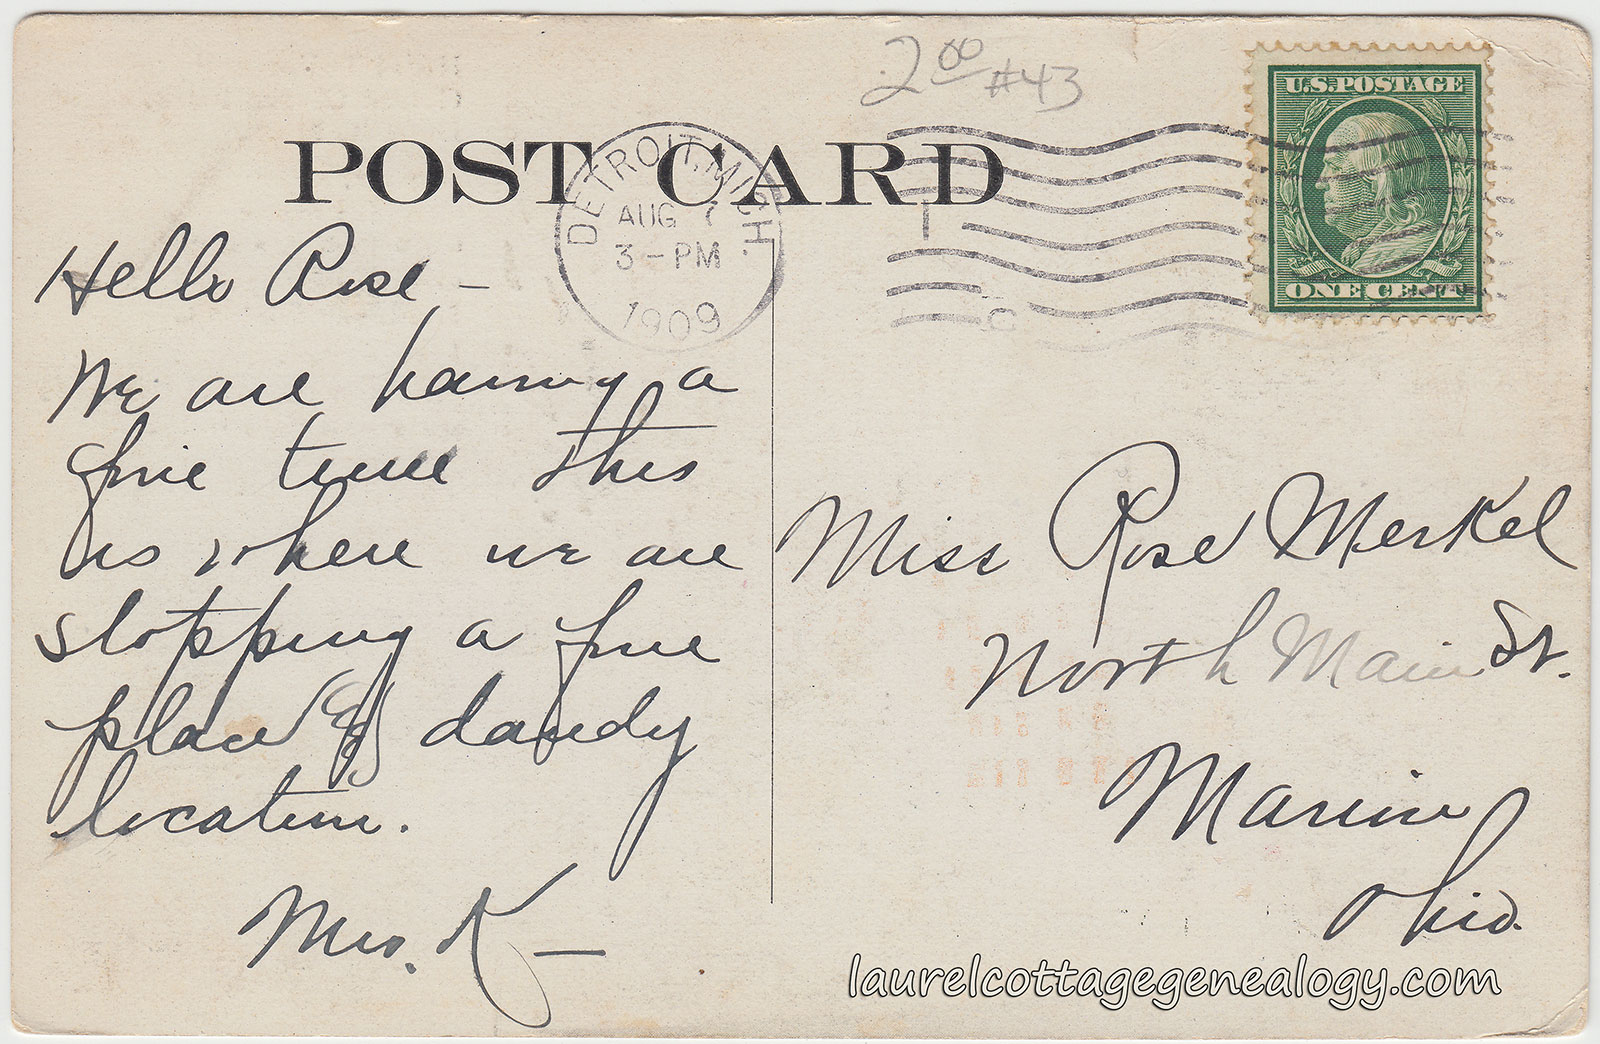 2 00 #43
U.S. POSTAGE
ONE CENT
POST CARD
DETROIT, MICH.
AUG 7
3-PM
1909
C
Hello Rose -
We are having a
fine time this
is where we are
stopping a fine
place & dandy
location.
Mrs. K -
Miss Rose Merkel
North Main St.
Marion
Ohio.
laurelcottagegenealogy.com